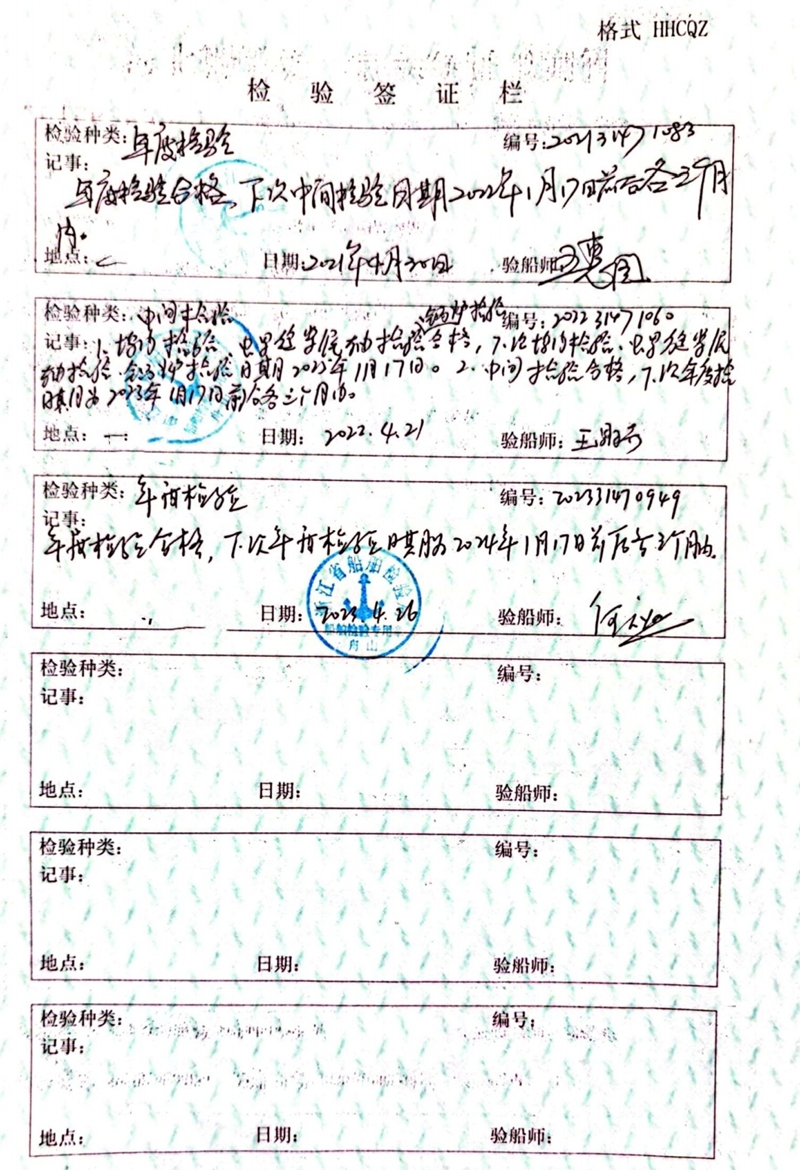 格式 HHCQZ
检验签证栏
检验种类: 年度检验 编号: 202131471083
记事:
年度检验合格，下次中间检验日期2022年1月17日前后各三个月
内。
地点: 日期: 2021年4月30日 验船师:
检验种类: 中间检验 编号: 202231471060
锅炉检验
记事: 1. 坞内检验、螺旋桨尾轴检验合格，下次坞内检验、螺旋桨尾
轴检验、锅炉检验日期2025年11月17日。2. 中间检验合格，下次年度检
日期为2023年1月17日前后各三个月内。
地点: 日期: 2022.4.21 验船师:
检验种类: 年度检验 编号: 202331470949
记事:
年度检验合格，下次年度检验日期为2024年1月17日前后各三个月内。
地点: 日期: 2023.4.26 验船师:
浙江省船舶检验
船舶检验专用章
舟山
检验种类: 编号:
记事:
地点: 日期: 验船师:
检验种类: 编号:
记事:
地点: 日期: 验船师:
检验种类: 编号:
记事:
地点: 日期: 验船师: